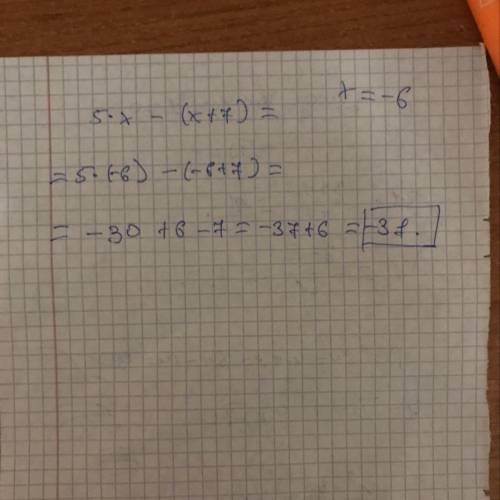 5·x - (x+7) = x = -6
= 5·(-6) - (-6+7) =
= -30 +6 -7 = -37+6 = -31.